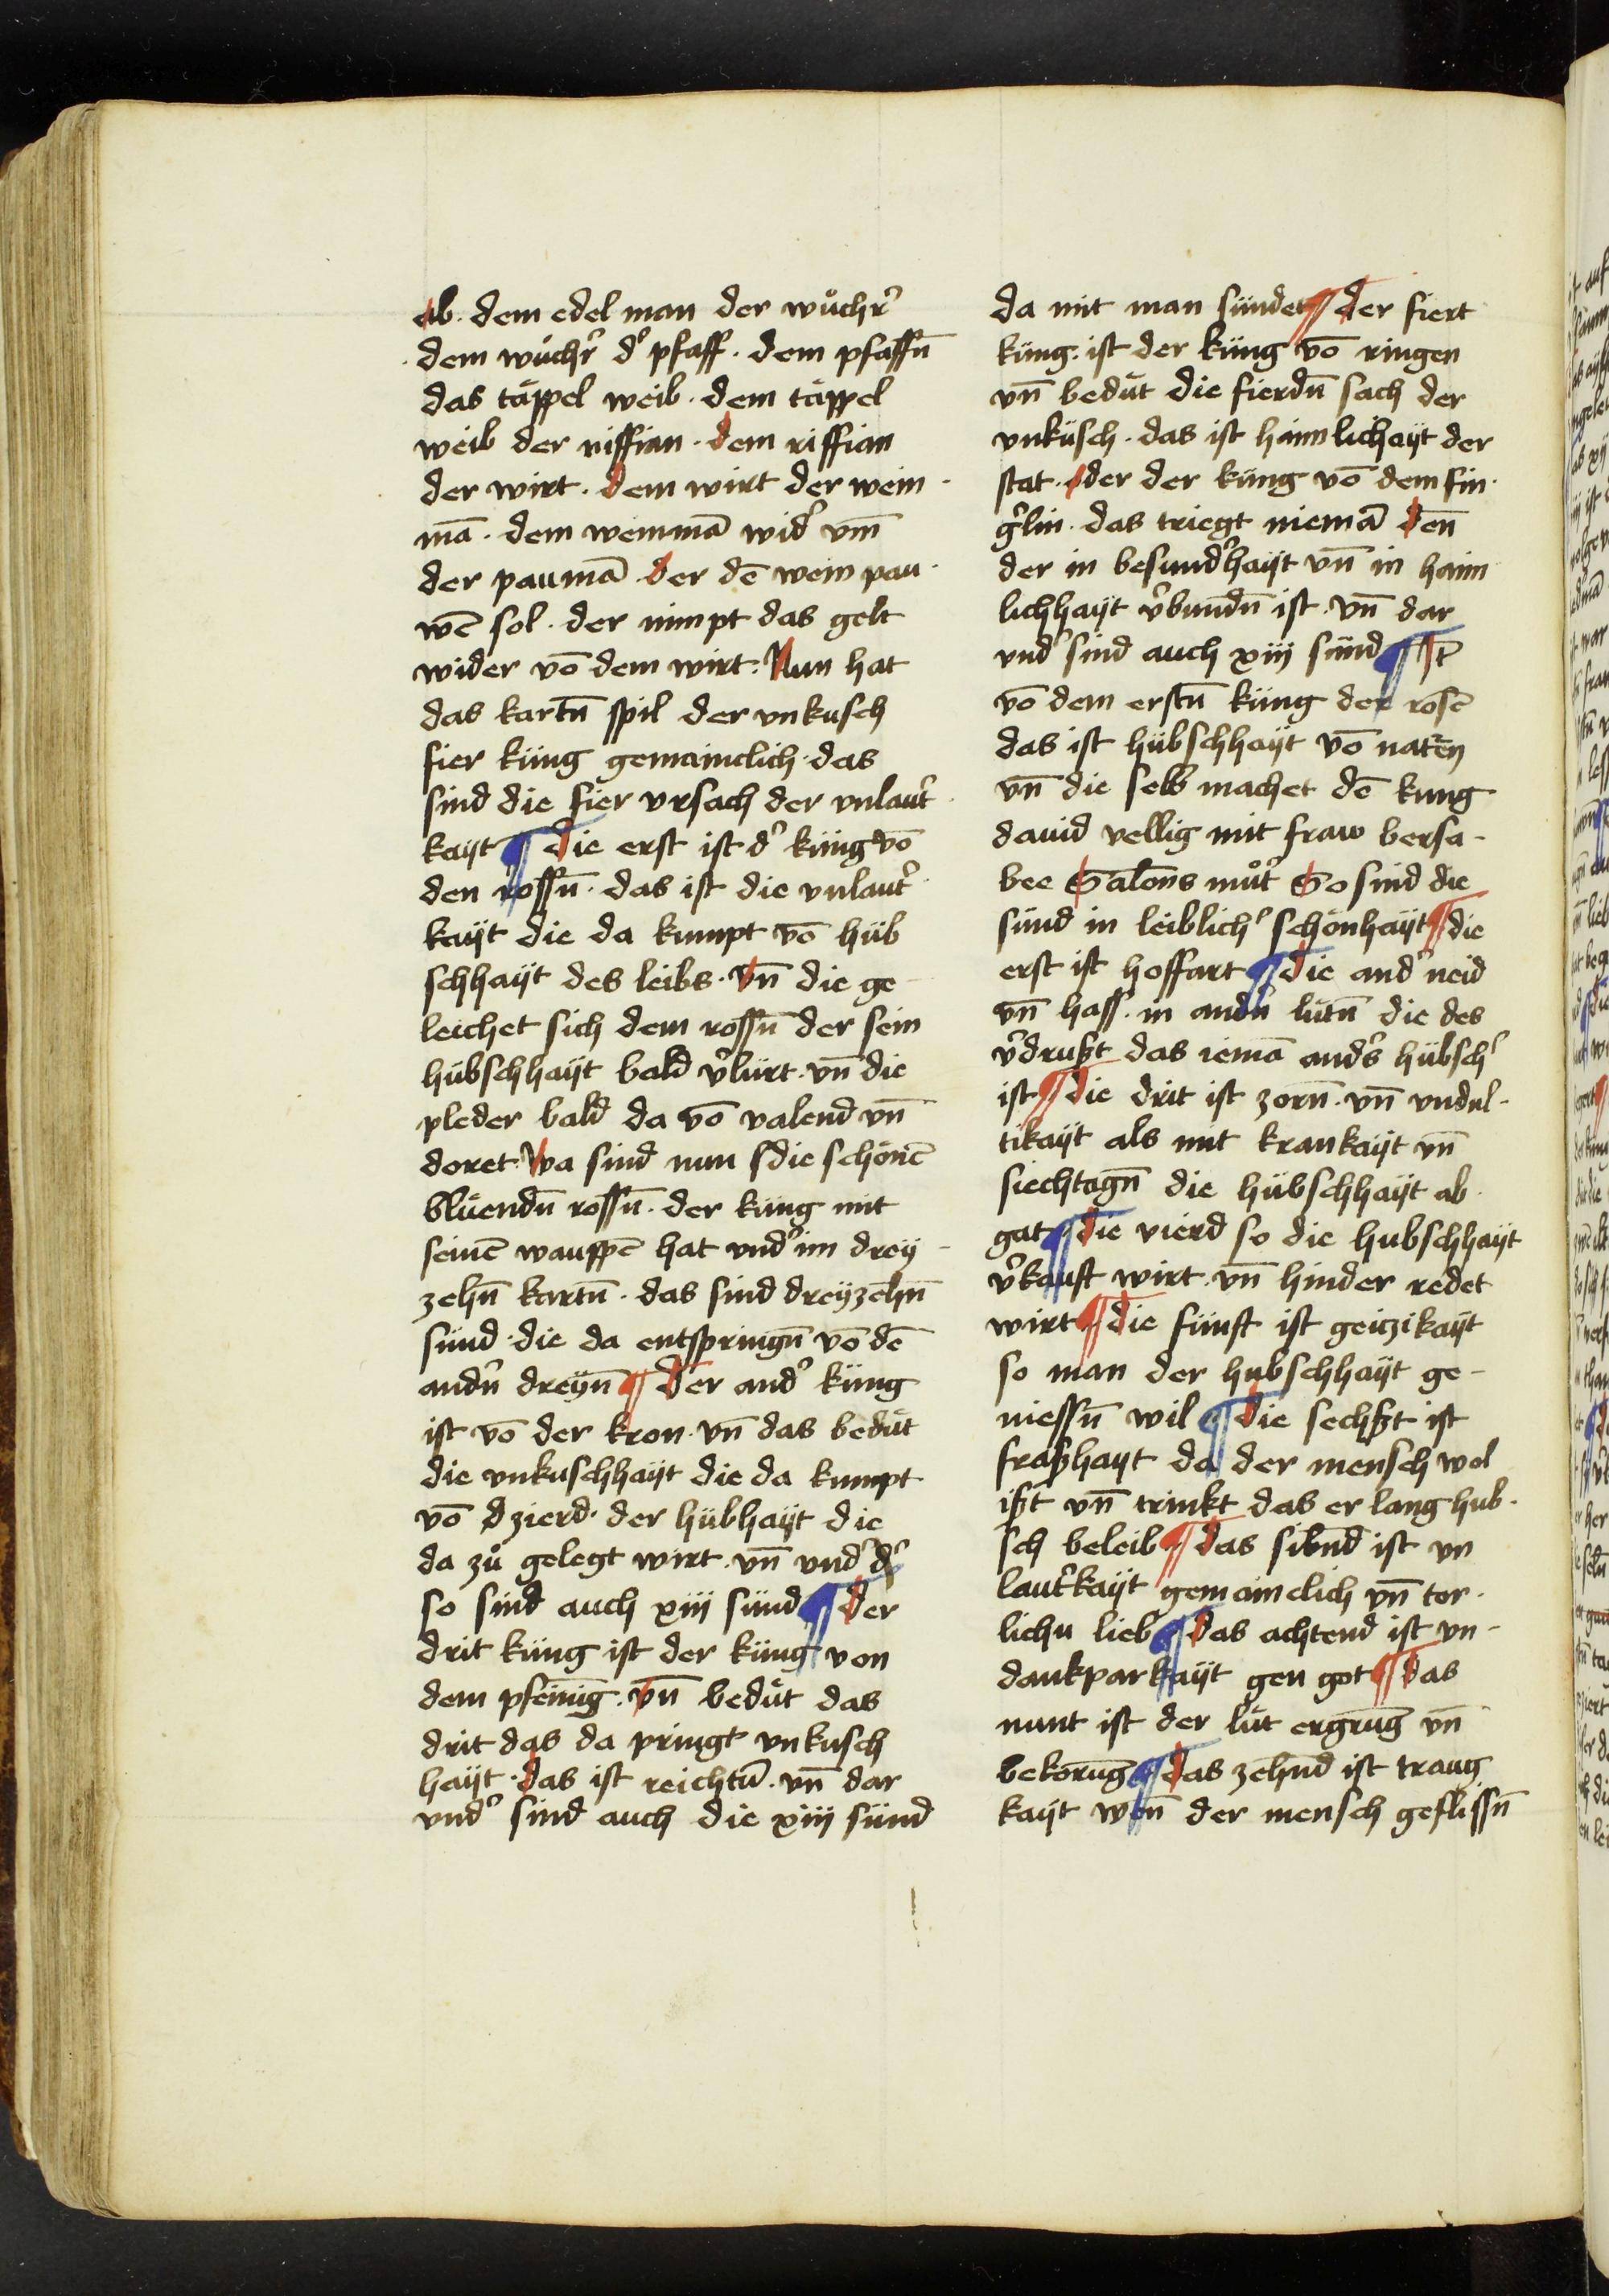 ab. dem edel man der wůchr̉
dem wůchr̉ d̉ pfaff. dem pfaffn̄
das täppel weib. dem täppel
weib der riffian. dem riffian
der wirt. dem wirt der wein
mā. dem weinmā wid̉ vm̄
der paumā der dē wein pau
wē sol. der nimpt das gelt
wider vō dem wirt: Nun hat
das kartn̄ spil der vnkusch
fier küng gemainclich. das
sind die fier vrsach der vnlaut̉
kayt ¶ die erst ist d̉ küng vō
den rossn̄. das ist die vnlaut̉
kayt die da kumpt vō hüb
schhayt des leibs. vn̄ die ge
leichet sich dem rossn̄ der sein
hübschhayt bald v̉lürt. vn̄ die
pleder bald da vō valend vn̄
doret. wa sind nun die schönē
blüendn̄ rossn̄. der küng mit
seinē wauppē hat vnd̉ im drey
zehn̄ kartn̄. das sind dreyzehn̄
sünd. die da entspringn̄ vō dē
andn̉ dreyn̄ ¶ der and̉ küng
ist vō der kron. vn̄ das bedüt
die vnkuschhayt die da kumpt
vō d zierd. der hübhayt die
da zů gelegt wirt. vn̄ vnd̉ d̉
so sind auch xiij sünd ¶ der
drit küng ist der küng von
dem pfeniḡ. vn̄ bedüt das
drit das da pringt vnkusch
hayt. das ist reichtū. vn̄ dar
vnd̉ sind auch die xiij sünd
da mit man sündet ¶ der fiert
küng. ist der küng vō ringen
vn̄ bedüt die fierdn̄ sach der
vnküsch. das ist haimlichayt der
stat. oder der küng vō dem fin
g̉lin. das triegt niemā den̄
der in besund̉hayt vn̄ in haim
lichhayt v̉bundn̄ ist. vn̄ dar
vnd̉ sind auch xiij sünd ¶ It̄
vō dem erstn̄ küng der rosē
das ist hübschhayt vō naten̄
vn̄ die selb machet dē kung
dauid vellig mit fraw bersa
bee Salon̄s můt̉ So sind die
sünd in leiblich̉ schönhayt ¶ die
erst ist hoffart ¶ die and̉ neid
vn̄ hass. in andn̉ lütn̄ die des
v̉drußt das iemā and̉s hübsch̉
ist ¶ die drit ist zorn̄. vn̄ vndul
tikayt als mit krankayt vn̄
siechtagn̄ die hübschhayt ab
gat ¶ die vierd so die hubschhayt
v̉kauft wirt. vn̄ hinder redet
wirt ¶ die fünft ist geiczikayt
so man der hubschhayt ge-
niessn̄ wil ¶ die sechßt ist
fraßhayt da der mensch wol
ißt vn̄ trinkt das er lang hub
sch beleib ¶ das sibnd ist vn
laut̉kayt gemainclich vn̄ tor
lichu lieb ¶ das achtend ist vn-
dankparkayt gen got ¶ das
nunt ist der lüt ergrunḡ vn̄
bekorunḡ ¶ das zehnd ist traug
kayt wen̄ der mensch geflissn̄